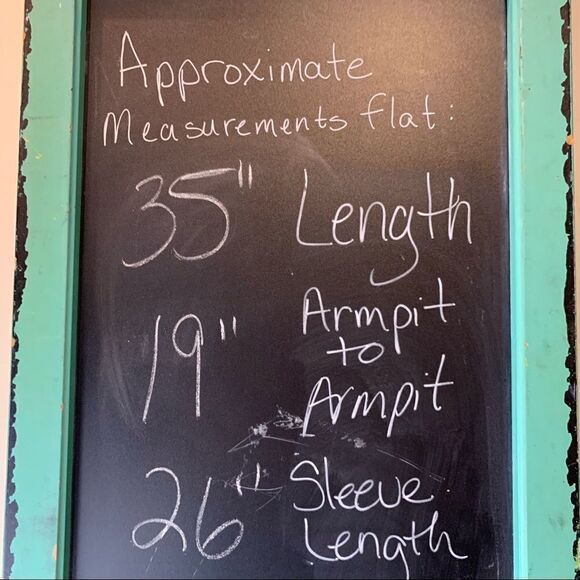 Approximate
Measurements flat:
35" Length
19" Armpit
to
Armpit
26" Sleeve
Length